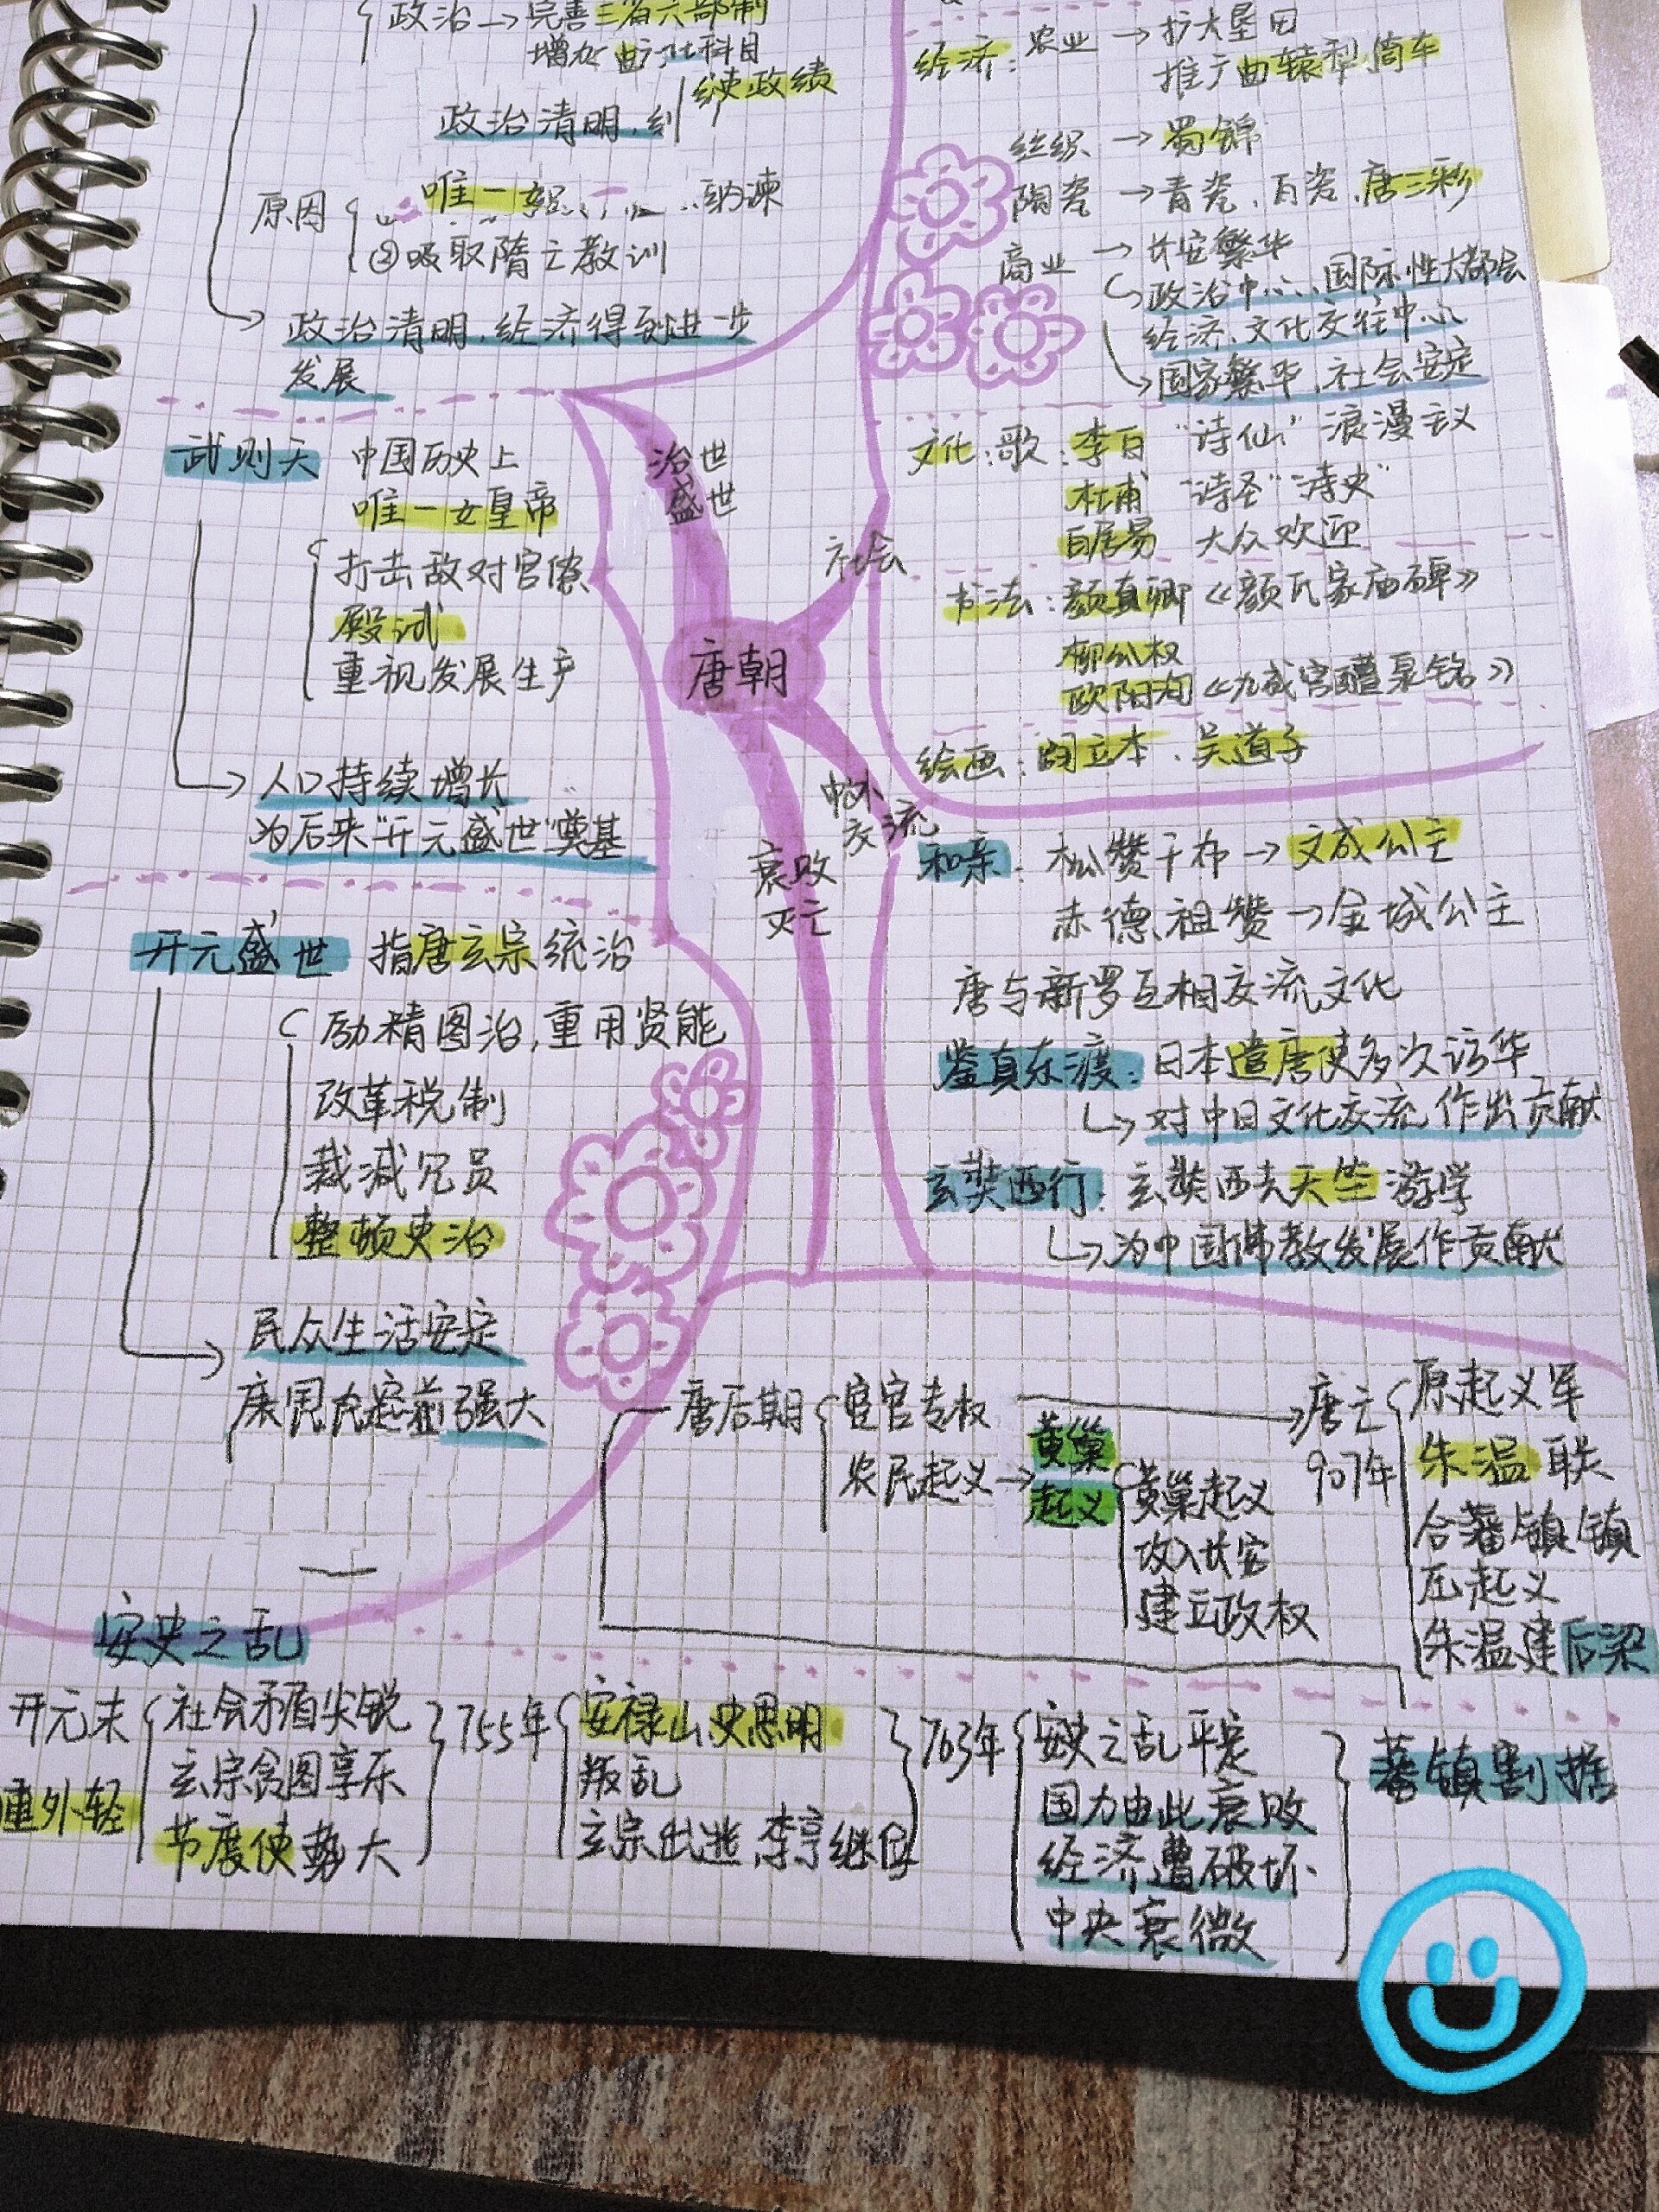 政治→完善三省六部制
政绩
政治清明
原因
唯一
纳谏
②吸取隋亡教训
政治清明,经济得到进一步
发展
武则天 中国历史上
唯一女皇帝
打击敌对官僚
殿试
重视发展生产
人口持续增长
为后来“开元盛世”奠基
开元盛世 指唐玄宗统治
励精图治,重用贤能
改革税制
裁减冗员
整顿吏治
民众生活安定
强大
治世
盛世
社会
唐朝
中外
交流
衰败
灭亡
经济:农业→扩大垦田
推广曲辕犁,筒车
丝织→蜀锦
陶瓷→青瓷、白瓷、唐三彩
商业→长安繁华
政治中心、国际性大都会
经济、文化交往中心
→国家繁华,社会安定
文化:歌:李白 “诗仙” 浪漫主义
杜甫 “诗圣” “诗史”
白居易 大众欢迎
书法:颜真卿《颜氏家庙碑》
柳公权
欧阳询《九成宫醴泉铭》
绘画:阎立本、吴道子
和亲:松赞干布→文成公主
赤德祖赞→金城公主
唐与新罗互相交流文化
鉴真东渡:日本遣唐使多次访华
↳对中日文化交流作出贡献
玄奘西行:玄奘西去天竺游学
↳为中国佛教发展作贡献
唐后期
宦官专权
农民起义→
黄巢
起义
黄巢起义
攻入长安
建立政权
唐亡
907年
原起义军
朱温联
合藩镇镇
压起义
朱温建后梁
安史之乱
开元末
重外轻
社会矛盾尖锐
玄宗贪图享乐
节度使势大
755年
安禄山史思明
叛乱
玄宗出逃,李亨继位
763年
安史之乱平定
国力由此衰败
经济遭破坏
中央衰微
藩镇割据